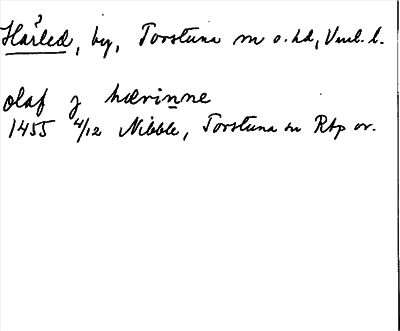 Härled, by, Torstuna sn o. hd, Vml. l.
olaf j hærinne
1455 4/12 Nibble, Torstuna sn Rtp or.